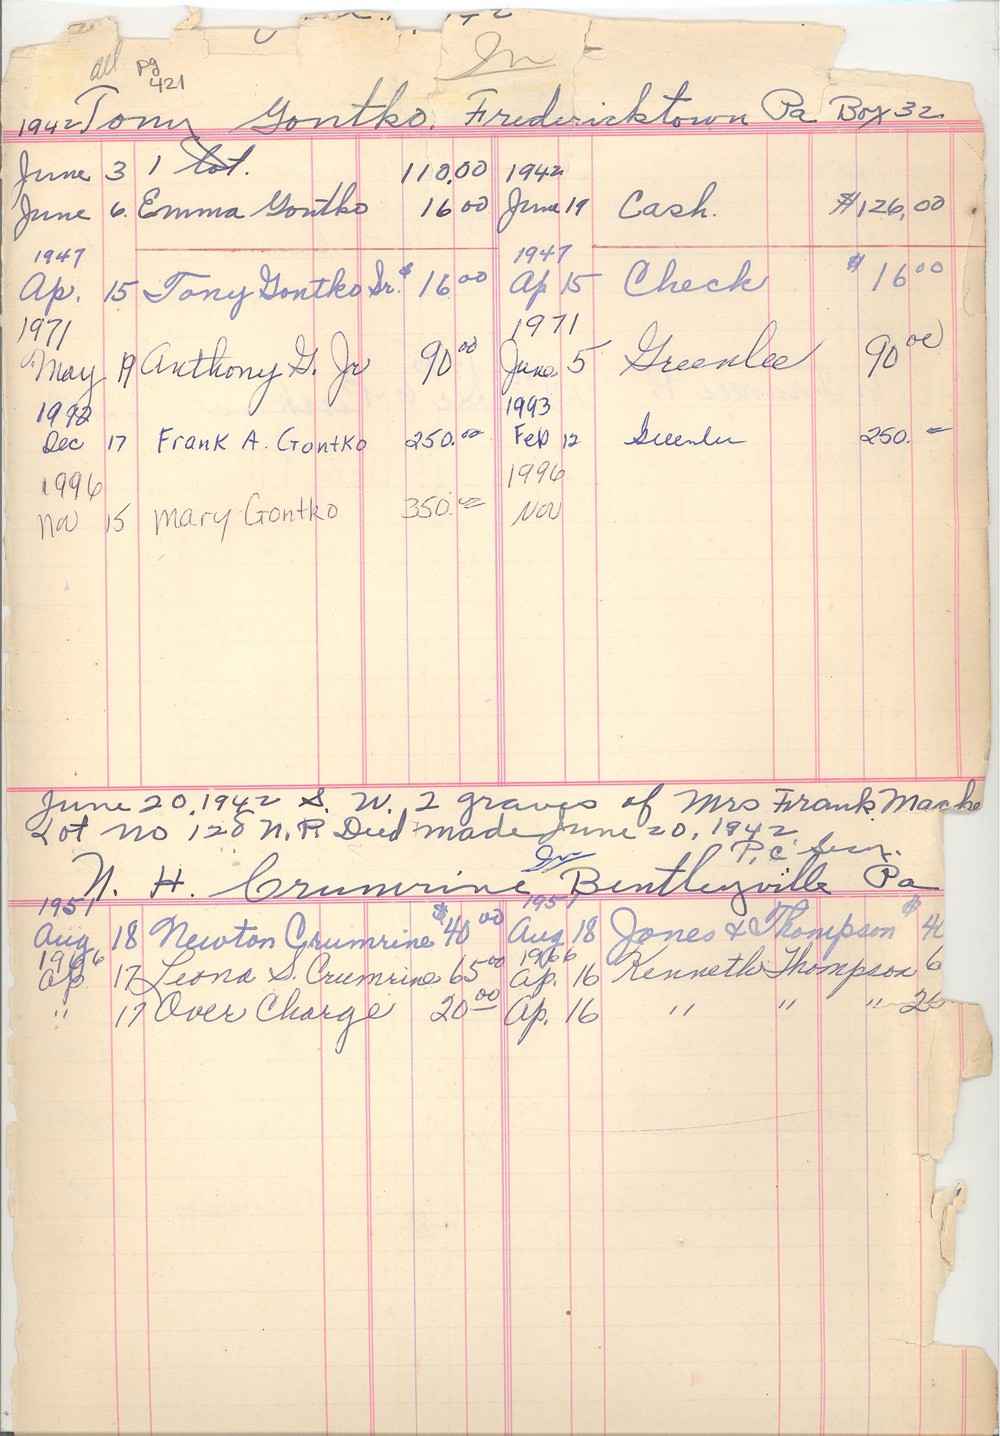 In
all pg 421
1942 Tony Gontko. Fredericktown Pa Box 32
June 3 1 lot. 110.00 1942
June 6. Emma Gontko 16 00 June 19 Cash. $126.00
1947 1947
Ap. 15 Tony Gontko Sr. $16.00 Ap 15 Check $16 00
1971 1971
May 19 Anthony G. Jr 90 00 June 5 Greenlee 90 00
1992 1993
Dec 17 Frank A. Gontko 250.00 Feb 12 Greenlee 250. –
1996 1996
Nov 15 Mary Gontko 350.00 Nov
June 20, 1942 S. W. 2 graves of Mrs Frank Mache
Lot No 128 N.P. Deed made June 20, 1942
P.C.
In
N. H. Crumrine Bentleyville Pa
1951 1951
Aug 18 Newton Crumrine $40 00 Aug 18 Jones & Thompson $ 4
1966 1966
Ap. 17 Leona S. Crumrine 65 00 Ap. 16 Kenneth Thompson 6
" 17 Over Charge 20 00 Ap. 16 " " " 20